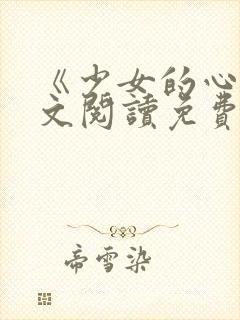 《少女的心
文閱讀免費
帝雪染